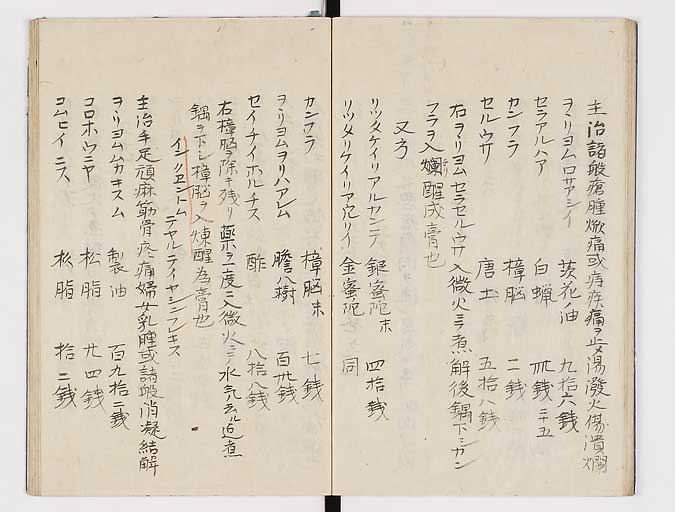 主治諸般瘡腫焮痛或痔疾痛ヲ止湯潑火傷潰爛
ヲヽリヨムロサアシイ 茨花ノ油 九拾六銭
セラアルハア 白蝋 卅銭 三十五
カンフラ 樟脳 二銭
セルウサ 唐土 五拾八銭
右ヲヽリヨムセラセルウサ入微火ニテ煮解後鍋下シカン
フラヲ入爛醒成膏也
又方
リツタケイリアルカンテ 銀蜜陀末 四拾銭
リツタリケイリアウリイ 金蜜陀 同
カンフラ 樟脳末 七銭
ヲヽリヨムヲリハアレム 膽八樹 百卅銭
セイチイホルチス 酢 八拾八銭
右樟脳ヲ除キ残リ薬ヲ一度ニ入微火ニテ水気去ル迄煮
鍋ヲ下シ樟脳ヲ入煉醒為膏也
インクエントム テヤルテイヤシンフキス
主治手足頑麻筋骨疼痛婦女乳腫或諸般消凝結解
ヲヽリヨムムカキスム 製油 百九拾二銭
コロホウニヤ 松脂 廿四銭
コムヒイニス 松脂 拾二銭